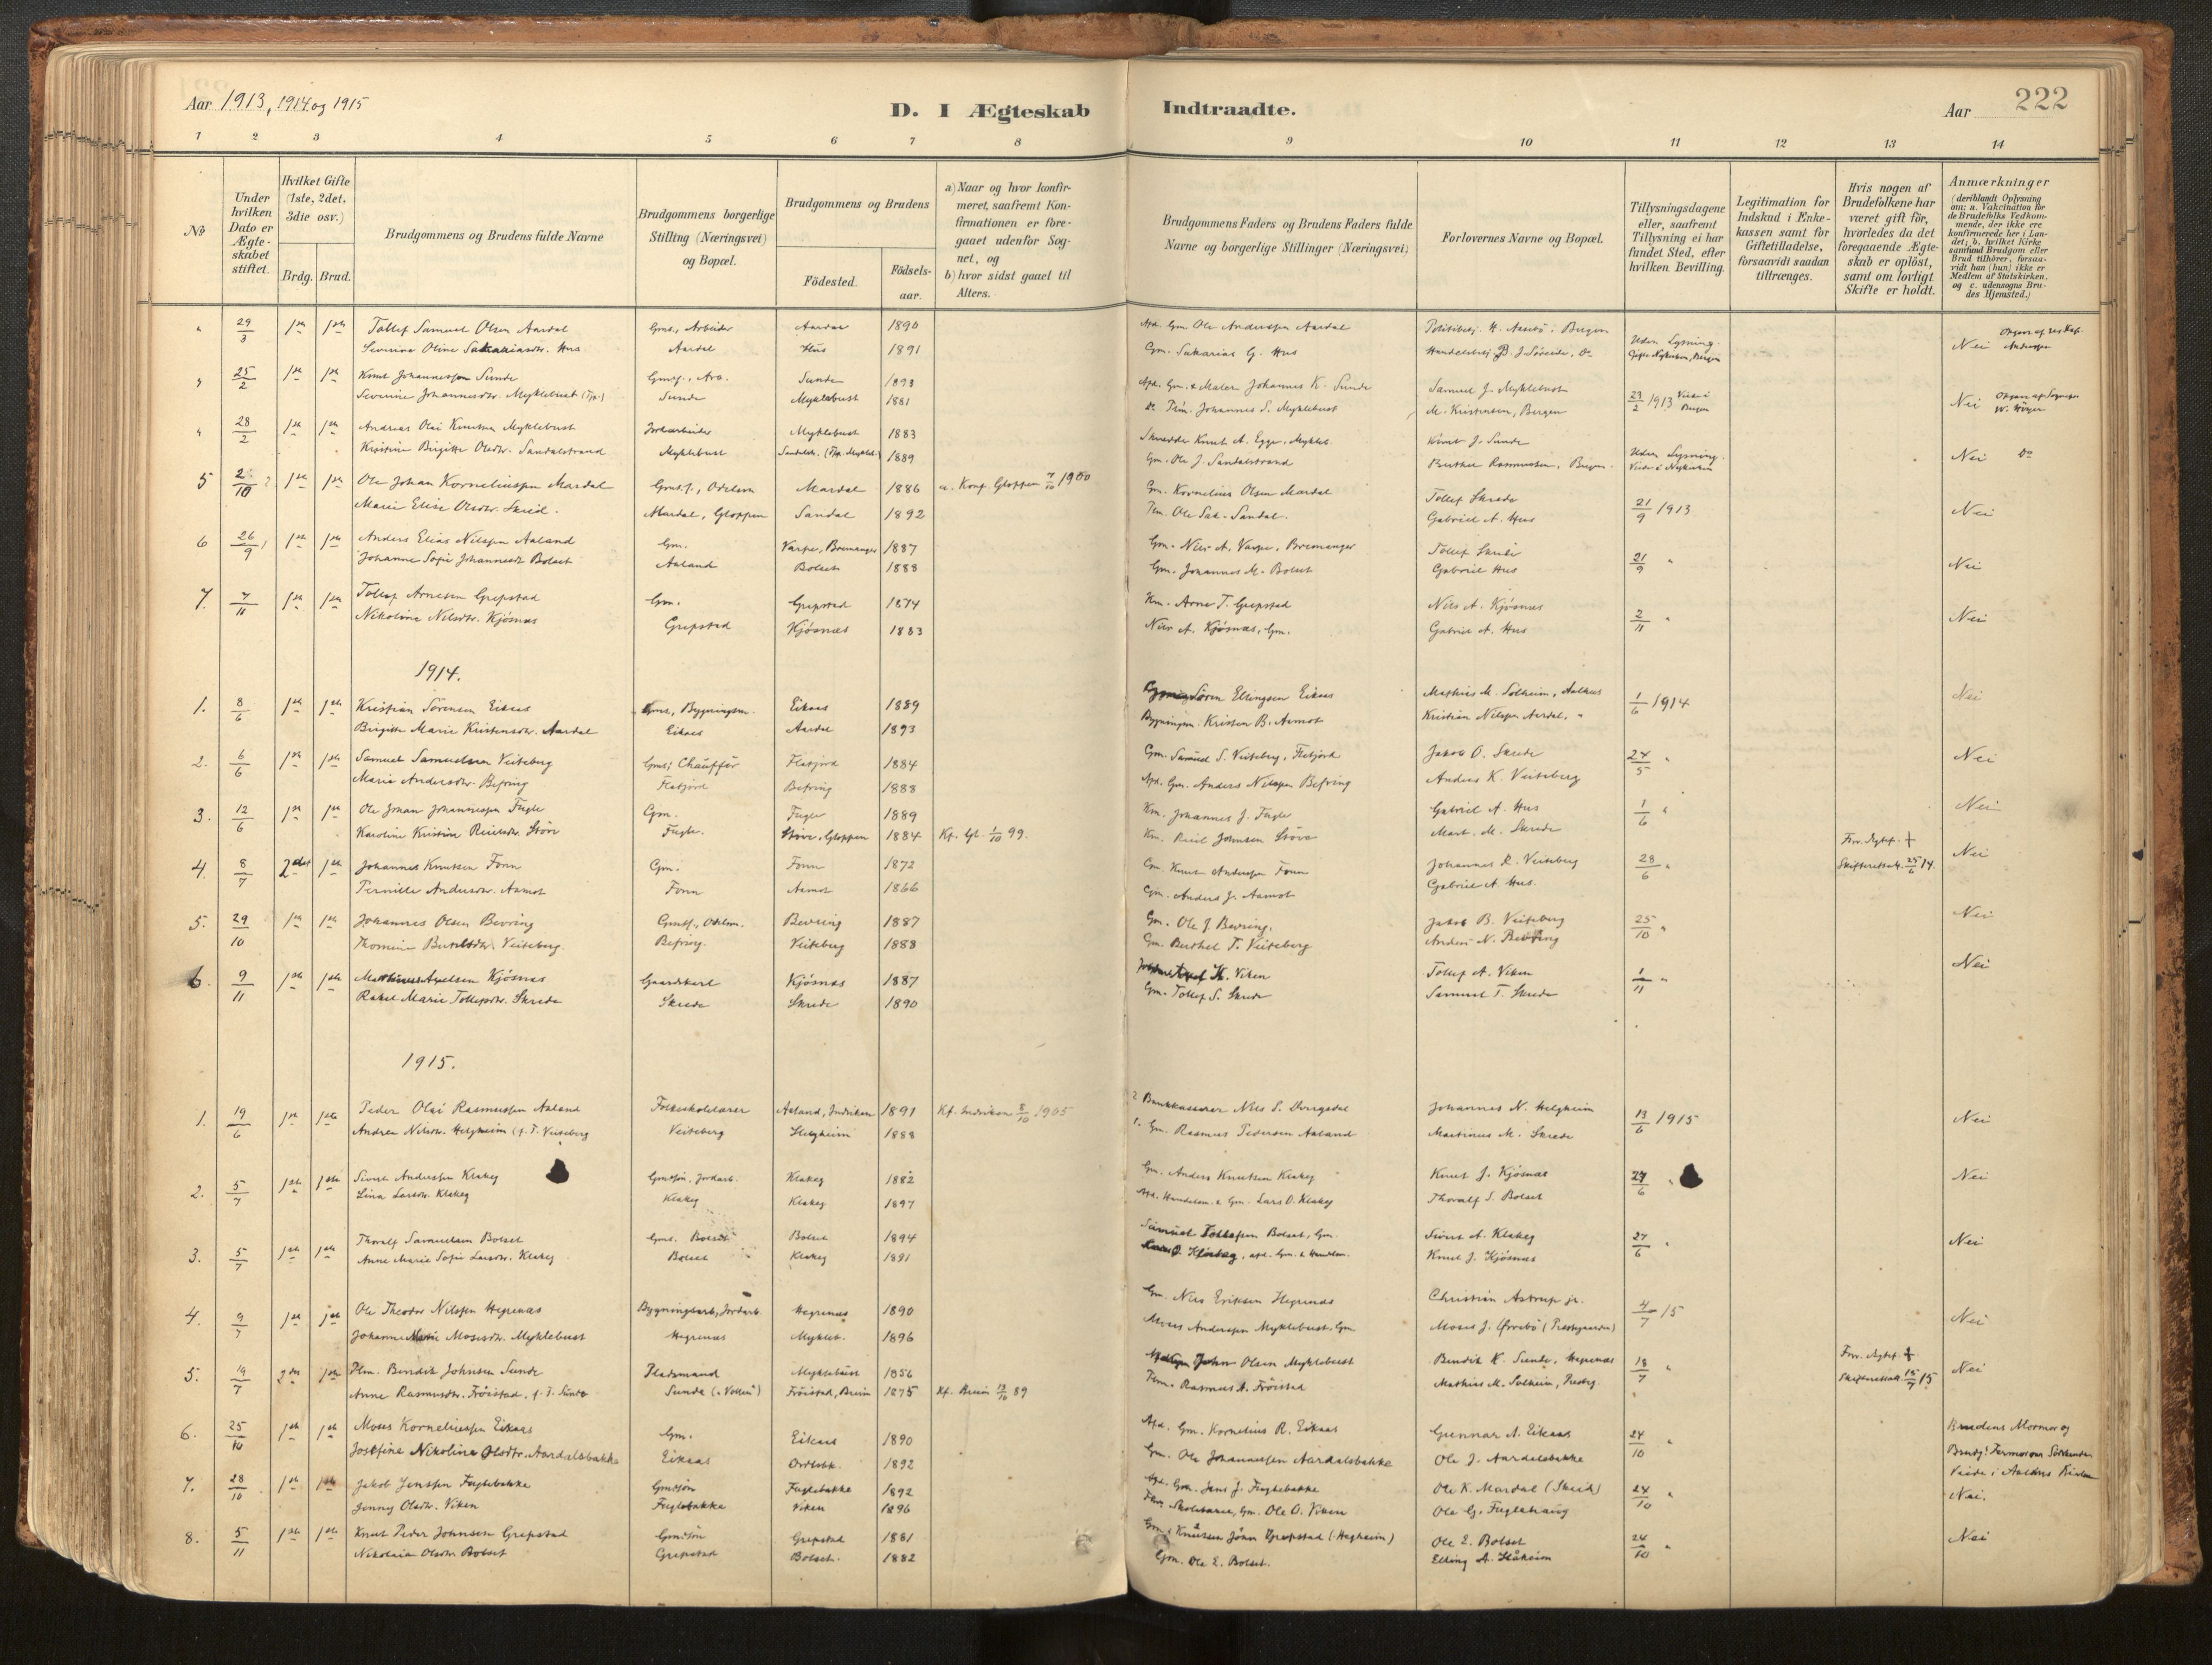 Aar 1913, 1914 og 1915
D. I Ægteskab Indtraadte.
Aar 222
1 2 3 4 5 6 7 8 9 10 11 12 13 14
№
Under hvilken Dato er Ægteskabet stiftet.
Hvilket Gifte (1ste, 2det, 3die osv.)
Brdg. Brud.
Brudgommens og Brudens fulde Navne
Brudgommens borgerlige Stilling (Næringsvei) og Bopæl.
Brudgommens og Brudens
Födested.
Födsels-aar.
a) Naar og hvor konfirmeret, saafremt Konfirmationen er foregaaet udenfor Sognet, og
b) hvor sidst gaaet til Alters.
Brudgommens Faders og Brudens Faders fulde Navne og borgerlige Stillinger (Næringsvei)
Forlovernes Navne og Bopæl.
Tillysningsdagene eller, saafremt Tillysning ei har fundet Sted, efter hvilken Bevilling.
Legitimation for Indskud i Enkekassen samt for Giftetilladelse, forsaavidt saadan tiltrænges.
Hvis nogen af Brudefolkene har været gift för, hvorledes da det foregaaende Ægteskab er oplöst, samt om lovligt Skifte er holdt.
Anmærkninger
(deriblandt Oplysning om: a. Vakcination for de Brudefolks Vedkommende, der ikke ere konfirmerede her i Landet; b. hvilket Kirkesamfund Brudgom eller Brud tilhörer, forsaavidt han (hun) ikke er Medlem af Statskirken. og c. udensogns Brudes Hjemsted.)
" 29/3 1ste 1ste Tollef Samuel Olsen Aardal Gms., Arbeider Aardal 1890 Afd. Gm. Ole Anderssen Aardal
Severine Oline Sakariasdtr. Hus Aardal Hus 1891 Gm. Sakarias G. Hus Uden Lysning. Nei
" 25/2 1ste 1ste Knut Johannessen Sunde Sunde 1893 Afd. Gm. & Maler Johannes K. Sunde Samuel J. Myklebust
Severine Johannesdtr. Myklebust Sunde Myklebust 1881 Johannes S. Myklebust M. Kristensen, Bergen 23/2 1913 Nei
" 28/2 1ste 1ste Andreas Olai Knutsen Myklebust Jordarbeider Myklebust 1883 Skredder Knut A. Egge, Mykleb. Knut J. Sunde
Kristine Birgitte Olsdtr. Sandalstrand Myklebust 1889 Gm. Ole J. Sandalstrand Berthel Rasmussen, Bergen Uden Lysning. Nei Do
5 2/10 1ste 1ste Ole Johan Korneliussen Mardal Gmts., Odelsm. Mardal 1886 a. Konf. Gloppen 7/10 1900 Gm. Kornelius Olsen Mardal Tollef Skrede
Marie Elise Olsdtr. Skrede. Mardal, Gloppen Sandal 1892 Ole Sak. Sandal. Gabriel A. Hus 21/9 1913 Nei
6 26/9 1ste 1ste Anders Elias Nilssen Aaland Gm. Varpe, Bremanger 1887 Gm. Nils A. Varpe, Bremanger Tollef Skrede
Johanne Sofie Johannesdtr Bolset Aaland Bolset 1888 Gm. Johannes M. Bolset Gabriel Hus 21/9 " Nei
7. 7/11 1ste 1ste Tollef Arnesen Grepstad Gm. Grepstad 1874 Km. Arne T. Grepstad Nils A. Kjösnæs
Nikoline Nilsdtr. Kjösnæs Grepstad Kjösnæs 1883 Nils A. Kjösnæs, Gm. Gabriel A. Hus 2/11 " Nei
1914.
1. 8/6 1ste 1ste Kristian Sörensen Eikaas Gms., Bygningsm. Eikaas 1889 Sören Ellingsen Eikaas Mathias M. Solheim, Aalhus
Birgitte Marie Kristensdtr. Aardal Eikaas Aardal 1893 Bygningsm. Kristen B. Aamot Kristian Nilssen Aardal, " 1/6 1914 Nei
2. 6/6 1ste 1ste Samuel Samuelsen Veiteberg Gms; Chauffør Flatjord 1884 Gm. Samuel S. Veiteberg, Flatjord Jakob O. Skrede
Marie Andersdtr. Befring Flatjord Befring 1888 Afd. Gm. Anders Nilssen Befring Anders K. Veiteberg 24/5 " Nei
3. 12/6 1ste 1ste Ole Johan Johannessen Fugle Gm. Fugle 1889 Km. Johannes J. Fugle Gabriel A. Hus
Karoline Kristine Störe Fugle. Störe, Gloppen 1884 Kf. Gl. 1/10 99. Km. Johnsen Störe Mart. M. Skrede 1/6 " Nei
4. 8/7 2det 1ste Johannes Knutsen Fonn Gm. Fonn 1872 Gm. Knut Anderssen Fonn Johannes R. Veiteberg Frv. Ægtef. †
Pernille Andersdtr. Aamot Fonn Aamot 1866 Gm. Anders J. Aamot Gabriel A. Hus. 28/6 " Skifterettsatt. 25/6 14. Nei
5. 29/10 1ste 1ste Johannes Olsen Bevring Gmts., Odelsm. Bevring 1887 Gm. Ole J. Bevring. Jakob B. Veiteberg
Thomine Bertelsdtr. Veiteberg. Befring. Veiteberg 1888 Gm. Berthel T. Veiteberg Anders N. Bevring 25/10 " Nei
6. 9/11 1ste 1ste Axelsen Kjösnæs Gaardskarl Kjösnæs 1887 K. Viken Tollef A. Viken
Rakel Marie Tollefsdtr. Skrede Skrede Skrede 1890 Gm. Tollef S. Skrede Samuel T. Skrede 1/11 " Nei
1915.
1. 19/6 1ste 1ste Peder Olai Rasmussen Aaland Folkeskolelærer Aaland, Indviken 1891 Kf. Indviken 8/10 1905 2 Bankkasserer Nils S. Dvergsdal Johannes N. Helgheim
Andrea Nilsdtr. Helgheim (f. T. Veiteberg Veiteberg Helgheim 1888 1. Gm. Rasmus Pedersen Aaland Martinus M. Skrede 13/6 1915 Nei
2. 5/7 1ste 1ste Sivert Anderssen Klakeg Gmdsøn, Jordarb. Klakeg 1882 Gm. Anders Knutsen Klakeg Knut J. Kjösnæs
Lina Larsdtr. Klakeg Klakeg Klakeg 1897 Afd. Handelsm. & Gm. Lars O. Klakeg Thoralf S. Bolset 27/6 " Nei
3. 5/7 1ste 1ste Thoralf Samuelsen Bolset Gms. Bolset 1894 Samuel Tollefsen Bolset, Gm. Sivert A. Klakeg
Anne Marie Sofie Larsdtr. Klakeg Bolset Klakeg 1891 Klakeg, afd. Gm. & Handlm. Knut J. Kjösnæs 27/6 " Nei
4. 9/7 1ste 1ste Ole Theodor Nilssen Hegrenæs Bygningsarb, Jordarb. Hegrenæs 1890 Gm. Nils Eriksen Hegrenæs Christian Astrup jr.
Johanne Marie Mosesdtr. Myklebust Hegrenæs Mykleb. 1896 Moses Anderssen Myklebust, Gm Moses J. Ørrebö (Prestegaarden) 4/7 15 Nei
5. 19/7 2det 1ste Plm. Bendik Johnsen Sunde Pladsmand Myklebust 1856 John Olsen Myklebust Bendik K. Sunde, Hegrenæs Frv. Ægtef. †
Anne Rasmusdtr. Fröistad, f. T. Sunde Sunde Fröistad, Breim 1875 Kf. Breim 89 Plm. Rasmus A. Fröistad Mathias M. Solheim, 18/7 " Skifterettsatt. 15/7 15 Nei
6. 25/10 1ste 1ste Moses Korneliussen Eikaas Gm. Eikaas 1890 Afd. Gm. Kornelius R. Eikaas Gunnar A. Eikaas Brudens Mormor og
Josefine Nikoline Olsdtr. Aardalsbakke Eikaas 1892 Gm. Ole Johannessen Aardalsbakke Ole J. Aardalsbakke 24/10 " Brudg! Farmor var Söskende
Viede i Aalhus Kirke
7. 28/10 1ste 1ste Jakob Jenssen Fuglebakke Gmdsøn Fuglebakke 1892 Afd. Gm. Jens J. Fuglebakke Ole K. Mardal (Skrede)
Jenny Olsdtr. Viken Fuglebakke Viken 1896 Skolelærer, Gm. Ole O. Viken Ole G. Fuglehaug 24/10 " Nei.
8. 5/11 1ste 1ste Knut Peder Johnsen Grepstad Gmdsøn Grepstad 1881 Gm. Knutsen John Grepstad (Hegheim) Ole E. Bolset
Nikolaia Olsdtr Bolset Grepstad Bolset. 1882 Gm. Ole E. Bolset. Elling A. Håheim 24/10 " Nei